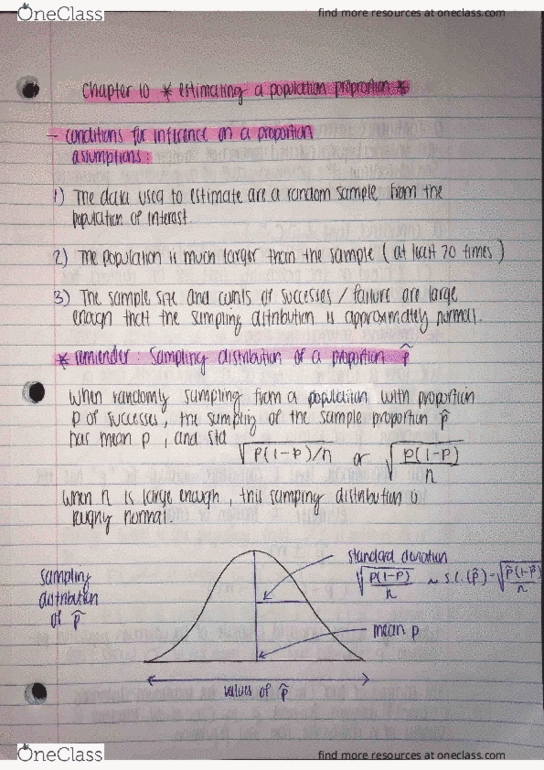 OneClass
find more resources at oneclass.com
Chapter 10 * estimating a population proportion *
- conditions for inference on a proportion
assumptions:
1) The data used to estimate are a random sample from the
population of interest.
2) The population is much larger than the sample (at least 20 times)
3) The sample size and counts of successes / failure are large
enough that the sampling distribution is approximately normal.
* reminder: Sampling distribution of a proportion p̂
When randomly sampling from a population with proportion
p of successes, the sampling of the sample proportion p̂
has mean p, and std √P(1-P)/n or √P(1-P)/n
When n is large enough, this sampling distribution is
roughly normal.
standard deviation
√P(1-P)/n ~ S.E.(p̂) = √p̂(1-p̂)/n
sampling
distribution
of p̂
mean p
values of p̂
OneClass
find more resources at oneclass.com